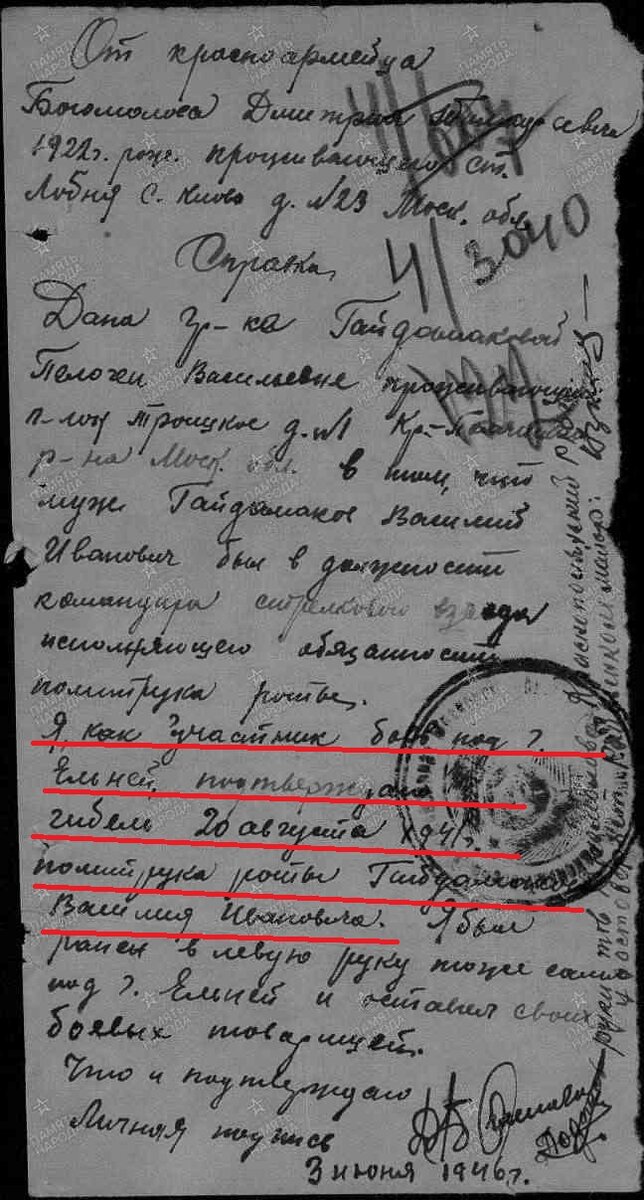 От красноармейца
Богомолова Дмитрия
1922 г. рож. проживающего ст.
Лобня с. Киово д. №23 Моск. обл.
4/3040
Справка
Дана гр-ке Гайдамаковой
Пелагеи Васильевне проживающей
п-лок Троицкое д. №1 Кр.-Полянского
р-на Моск. обл. в том, что
муж Гайдамаков Василий
Иванович был в должности
командира стрелкового взвода
исполняющего обязаности
политрука роты.
Я, как участник боёв под г.
Ельней, подтверждаю
гибель 20 августа 1941 г.
политрука роты Гайдамакова
Василия Ивановича. Я был
ранен в левую руку тоже само
под г. Ельней и оставил своих
боевых товарищей.
Что и подтверждаю
Личная подпись
3 июня 1946 г.
ПАМЯТЬ НАРОДА